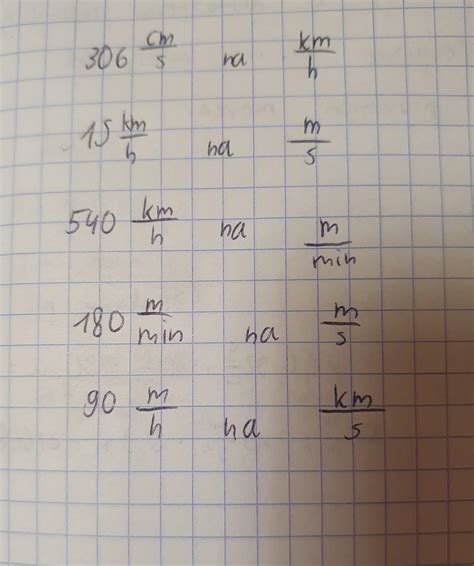 306 cm/s na km/h
15 km/h na m/s
540 km/h na m/min
180 m/min na m/s
90 m/h na km/s